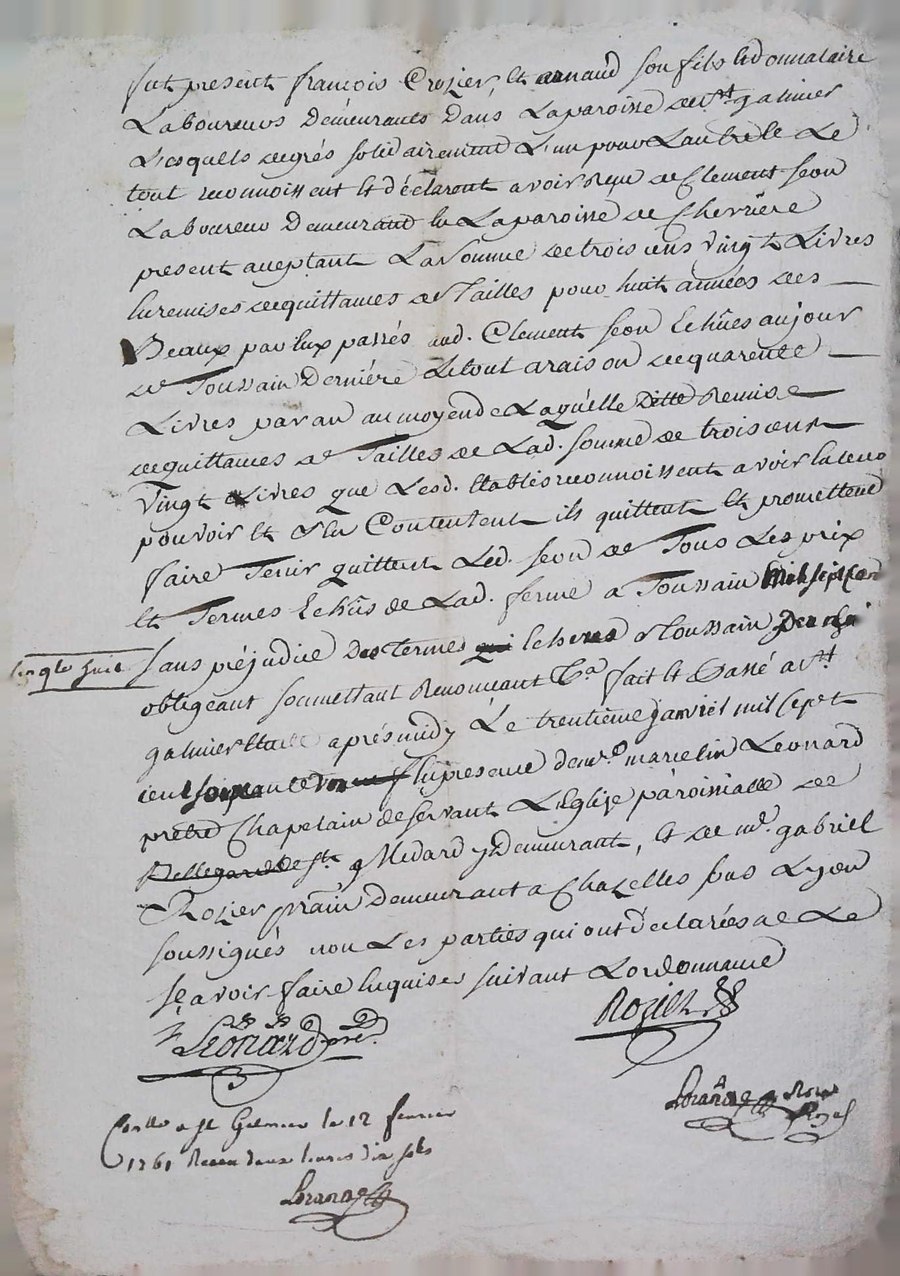 fut present françois Crozier, et arnaud son fils et donnataire
Laboureurs Demeurants Dans La paroisse de St galmier
Lesquels de grés solidairement L'un pour Lautre et Le
tout reconnoissent et déclarent avoir Reçu de Clement seon
Laboureur Demeurant En La paroisse de Chevriere
present acceptant La somme de trois cens vingt Livres
En remises de quittances de Tailles pour huit années des
Beaux par Eux passés aud. Clement seon Echûes au jour
de Toussain Dernière Le tout a raison de quarente
Livres par an au moyen de Laquelle Ditte Remise
de quittances de Tailles de Lad. somme de trois cent
Vingt Livres que Lesd. Etablis reconnoissent avoir
pouvoir et S'en Contentent ils quittent et promettent
faire Tenir quittent Led. seon de Tous Les prix
et Termes Echûs de Lad. ferme a Toussain Mil sept Cen
Cinqte huit sans préjudice Des termes Echeus a Toussain Dernier
obligeant soumettant Renonceant &a fait et Passé a St
galmier Etude aprés midy Le trentième janvier mil sept
cent soixante En presence de Mre marcelin Leonard
pretre Chapelain deservant L'Eglise paroissialle de
St Medard y Demeurant, et de Me. gabriel
Rozier prain Demeurant a Chazelles sus Lyon
soussignés non Les parties qui ont déclarées ne Le
sçavoir faire Enquises suivant Lordonnance
Leonard pre.
Rozier
Nore
Royal
Conllé a St Galmier le 12 février
1761 Receu deux livres dix sols